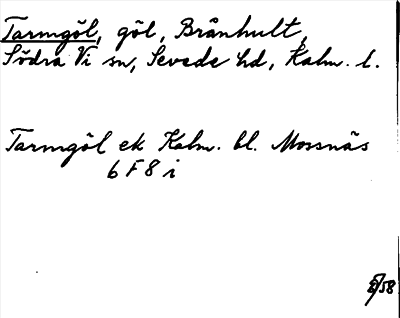 Tarmgöl, göl, Brånhult,
Södra Vi sn, Sevede hd, Kalm. l.
Tarmgöl ek Kalm. bl. Mossnäs
6 F 8 i